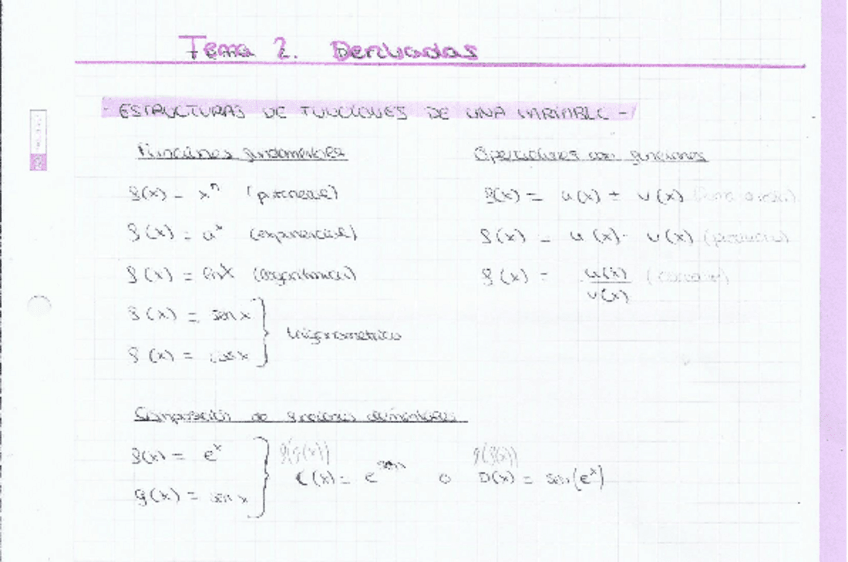 Tema 2. Derivadas
- ESTRUCTURAS DE FUNCIONES DE UNA VARIABLE -
Funciones fundamentales
f(x) = xⁿ (potencial)
f(x) = aˣ (exponencial)
f(x) = lnx (logarítmica)
f(x) = sen x
f(x) = cos x
trigonometrica
Operaciones con funciones
f(x) = u(x) + v(x)
f(x) = u(x) · v(x) (producto)
f(x) = u(x)/v(x) (cociente)
Composición de funciones elementales
f(x) = eˣ
g(x) = sen x
f(g(x))
C(x) = e^sen
o
g(f(x))
D(x) = sen(eˣ)